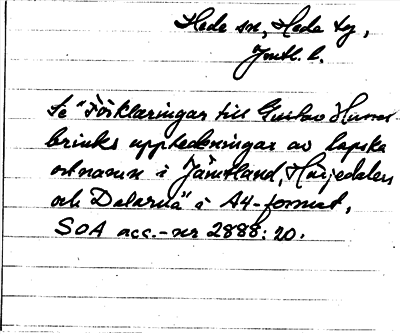 Hede sn, Hede tg,
Jmtl. l.
Se "Förklaringar till Gustav Hasselbrinks
brinks uppteckningar av lapska
ortnamn i Jämtland, Härjedalen
och Dalarna" i A4-format,
SOA acc.-nr 2888:20.